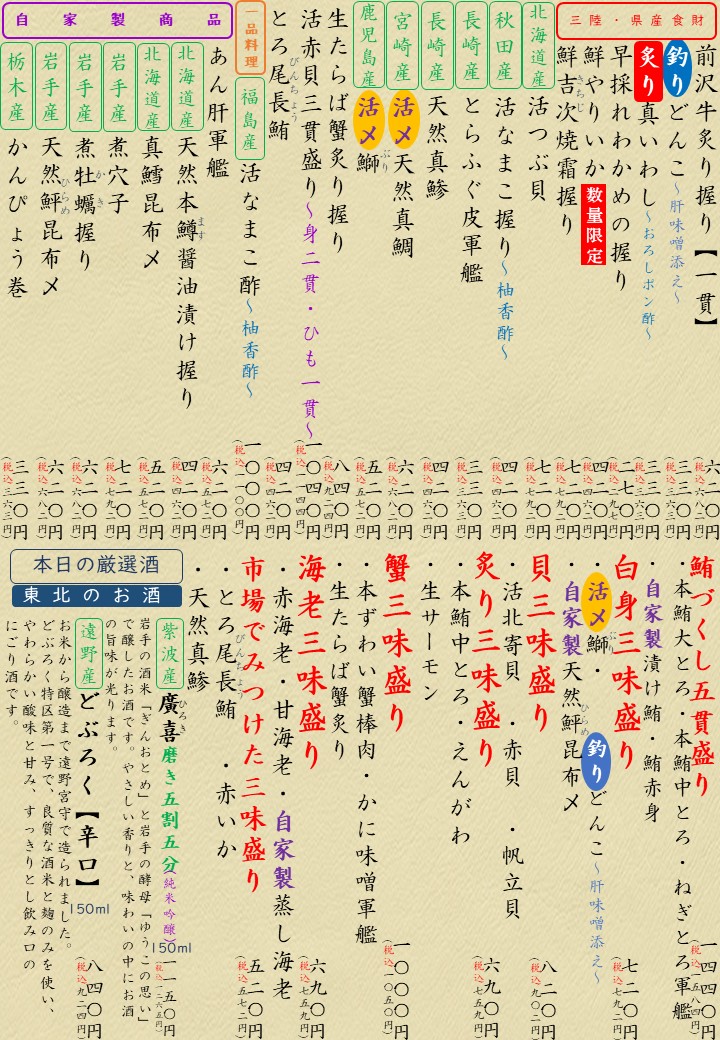 三陸・県産食財
前沢牛炙り握り【一貫】 六二〇円（税込六八二円）
釣りどんこ～肝味噌添え～ 三三〇円（税込三六三円）
炙り真いわし～おろしポン酢～ 三三〇円（税込三六三円）
早採れわかめの握り 二七〇円（税込二九七円）
鮮やりいか 数量限定 四二〇円（税込四六二円）
鮮吉次焼霜握り 七二〇円（税込七九二円）
きちじ
北海道産 活つぶ貝 七二〇円（税込七九二円）
秋田産 活なまこ握り～柚香酢～ 四二〇円（税込四六二円）
長崎産 とらふぐ皮軍艦 三三〇円（税込三六三円）
長崎産 天然真鯵 四二〇円（税込四六二円）
宮崎産 活〆天然真鯛 六二〇円（税込六八二円）
鹿児島産 活〆鰤 五二〇円（税込五七二円）
ぶり
生たらば蟹炙り握り 八四〇円（税込九二四円）
活赤貝三貫盛り～身二貫・ひも一貫～ 一〇四〇円（税込一一四四円）
とろ尾長鮪 四二〇円（税込四六二円）
びんちょう
一品料理
福島産 活なまこ酢～柚香酢～ 一〇〇〇円（税込一一〇〇円）
自家製商品
あん肝軍艦 六二〇円（税込五七二円）
北海道産 天然本鱒醤油漬け握り 四二〇円（税込四六二円）
ます
北海道産 真鱈昆布〆 五二〇円（税込五七二円）
岩手産 煮穴子 七二〇円（税込七九二円）
岩手産 煮牡蠣握り 六二〇円（税込六八二円）
かき
岩手産 天然鮃昆布〆 六二〇円（税込六八二円）
ひらめ
栃木産 かんぴょう巻 三三〇円（税込三六三円）
鮪づくし五貫盛り 一四四〇円（税込一五八四円）
・本鮪大とろ・本鮪中とろ・ねぎとろ軍艦
・自家製漬け鮪・鮪赤身
白身三味盛り 七二〇円（税込七九二円）
・活〆鰤・釣りどんこ～肝味噌添え～
ぶり
・自家製天然鮃昆布〆
ひらめ
貝三味盛り 八二〇円（税込九〇二円）
・活北寄貝・赤貝・帆立貝
炙り三味盛り 六九〇円（税込七五九円）
・本鮪中とろ・えんがわ
・生サーモン
蟹三味盛り 一〇〇〇円（税込一〇五〇円）
・本ずわい蟹棒肉・かに味噌軍艦
・生たらば蟹炙り
海老三味盛り 六九〇円（税込七五九円）
・赤海老・甘海老・自家製蒸し海老
市場でみつけた三味盛り 五二〇円（税込五七二円）
・とろ尾長鮪・赤いか
びんちょう
・天然真鯵
本日の厳選酒
東北のお酒
紫波産 廣喜 磨き五割五分（純米吟醸） 150ml 一一五〇円（税込一二六五円）
ひろき
岩手の酒米「ぎんおとめ」と岩手の酵母「ゆうこの思い」
で醸したお酒です。やさしい香りと、味わいの中にお酒
の旨味が光ります。
遠野産 どぶろく【辛口】 150ml 八四〇円（税込九二四円）
お米から醸造まで遠野宮守で造られました。
どぶろく特区第一号で、良質な酒米と麹のみを使い、
やわらかい酸味と甘み、すっきりとし飲み口の
にごり酒です。